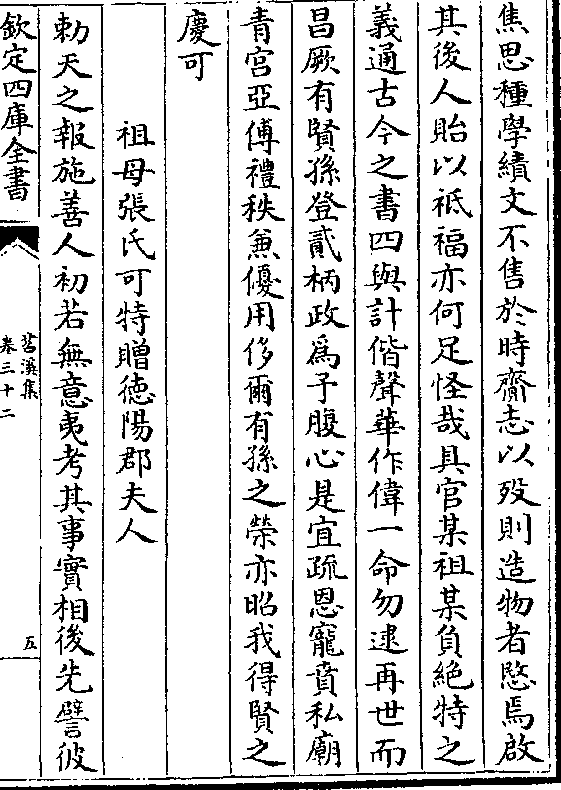 焦思種學績文不售於時齎志以歿則造物者愍焉啟
其後人貽以祗福亦何足怪哉具官某祖某負絶特之
義通古今之書四與計偕聲華作偉一命勿逮再世而
昌厥有賢孫登貳柄政為予腹心是宜疏恩寵賁私廟
青宮亞傅禮秩兼優用侈爾有孫之榮亦昭我得賢之
慶可
祖母張氏可特贈徳陽郡夫人
勅天之報施善人初若無意夷考其事實相後先譬彼
欽定四庫全書
苕溪集
卷三十二
五